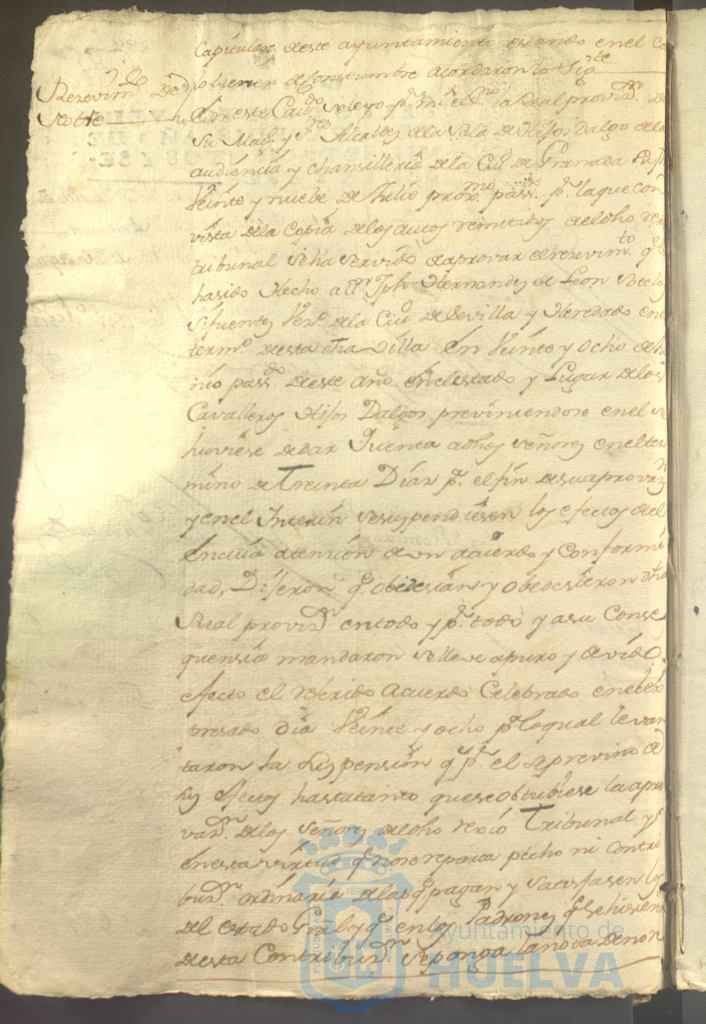 Capitulares de este ayuntamiento estando en el Co
lo tienen de Costumbre acordaron lo Sigte
Rezevimto de
Noble
En este Cavdo se leyo pr mi el Esno la Real provisn de
Su Magd y Sres Alcaldes de la Sala de Hijos dalgo de la
audiencia y chansilleria de la Ciud de Granada
Veinte y nuebe de Julio proxmo passdo pr la que con
vista de la Copia de los autos remitidos de dho
tribunal se ha servido de aprovar el rezevimto qe
ha sido Hecho a Dn Jph Hernandez de Leon
Sifuentes Veno de la Ciud de Sevilla y Heredado en
termo de esta dha Villa en Veinte y ocho de Ju
nio passdo de este año en el estado y Lugar de los
Cavalleros Hijos Dalgos previniendose en el se
huviese de dar Quenta a dhos Señores en el ter
mino de Treinta Dias pa el fin de su aprovazn
y en el Interin se suspendiesen los efectos de el
En cuia atencion de un acuerdo y conformi
dad, Dijeron qe obedesian y obedesieron dha
Real provisn en todo y pr todo y a su Conse
quensia mandaron se lleve a puro y devido
efecto el referido acuerdo Celebrado en el ex
presado dia Veinte y ocho pr lo qual levan
taron la suspension qe pr el se previno de
sus efectos hasta tanto que se obtubiese la apro
vazn de los Señores de dho rexio Tribunal y
en esta virtud qe no se reparta pecho ni contri
buzn ordinaria de las qe pagan y satisfasen los
del estado Gral y qe en los Padrones qe se hisieren
de esta Contribuzn se ponga la nota de no
Ayuntamiento de
HUELVA